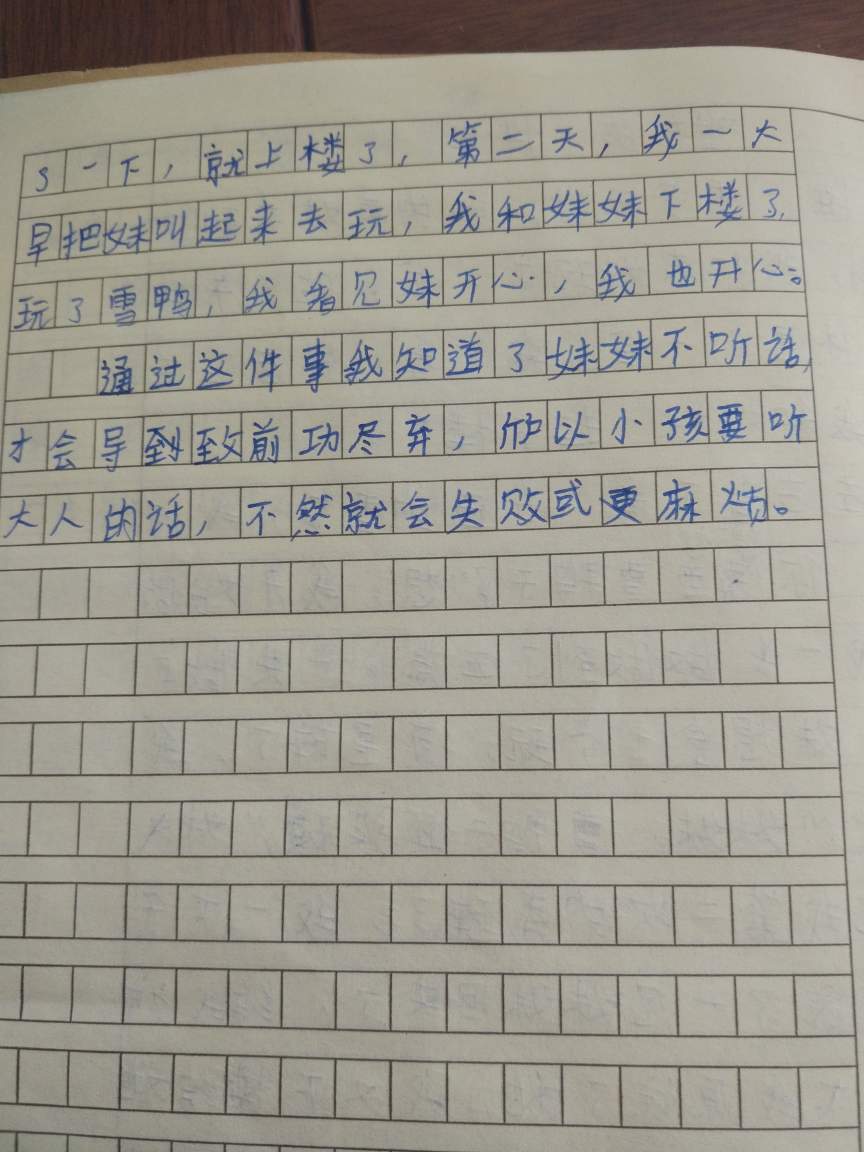 了一下，就上楼了，第二天，我一大
早把妹叫起来去玩，我和妹妹下楼了，
玩了雪鸭，我看见妹开心，我也开心。
通过这件事我知道了妹妹不听话，
才会导到致前功尽弃，所以小孩要听
大人的话，不然就会失败或更麻烦。